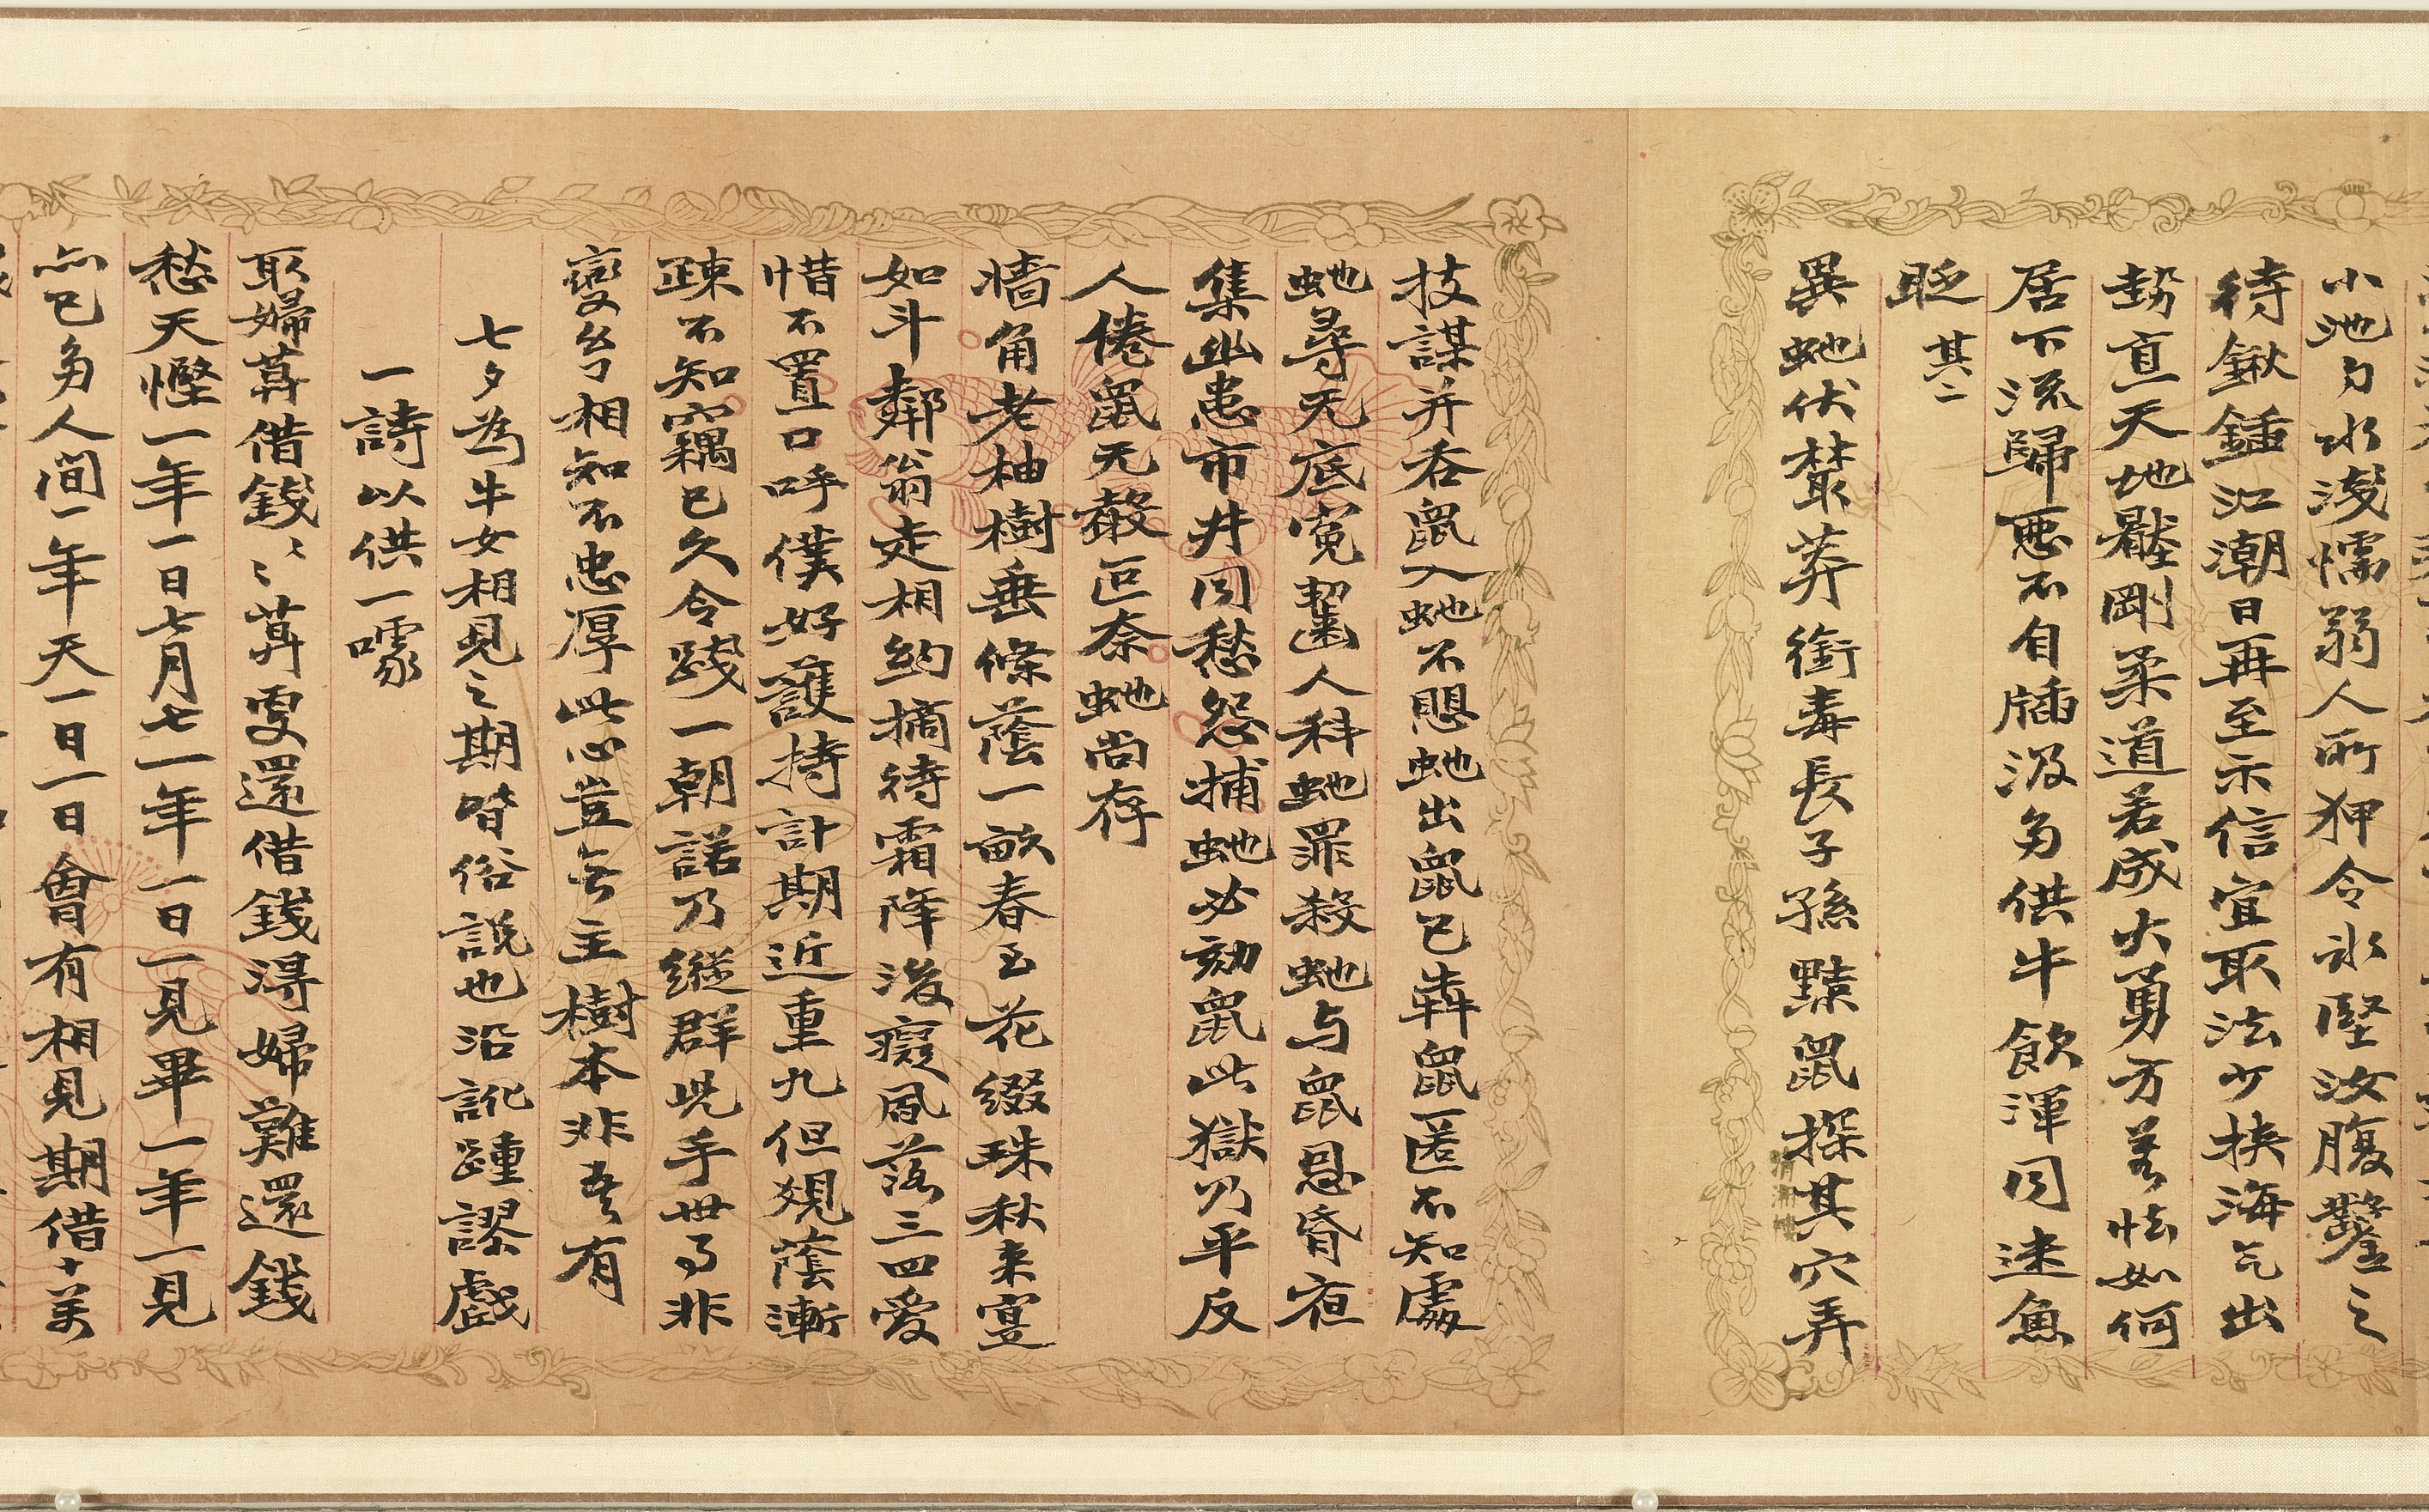 小池勺水淺懦弱人所狎令氷堅汝腹鑿之
待鍬鍤江潮日再至示信宜取法少挾海气出
勢亘天地壓剛柔道若成大勇方若怯如何
居下流歸惡不自牐汲多供牛飲渾同迷魚
眨 其二
異虵伏叢莽銜毒長子孫黠鼠探其穴弄
技謀并吞鼠入虵不愳虵出鼠已犇鼠匿不知處
虵尋无底寃齧人科虵罪殺虵与鼠恩昏夜
集幽患市井同愁怨捕虵必劾鼠此獄乃平反
人倦鼠无殽叵奈虵尚存
牆角老柚樹垂條蔭一畝春玉花綴珠秋来實
如斗鄰翁走相約摘待霜降後癡風落三四愛
惜不置口呼僕好護持計期近重九但覌蔭漸
疎不知竊已久令踐一朝諾乃縱群児手世事非
變兮相知不忠厚此心豈无主樹本非吾有
七夕為牛女相見之期㫮俗說也沿訛踵謬戲
一詩以供一噱
取婦萛借錢〻萛雯還借錢淂婦難還錢
愁天慳一年一日七月七一年一日一見畢一年一見
点已多人間一年天一日一日會有相見期借十萬